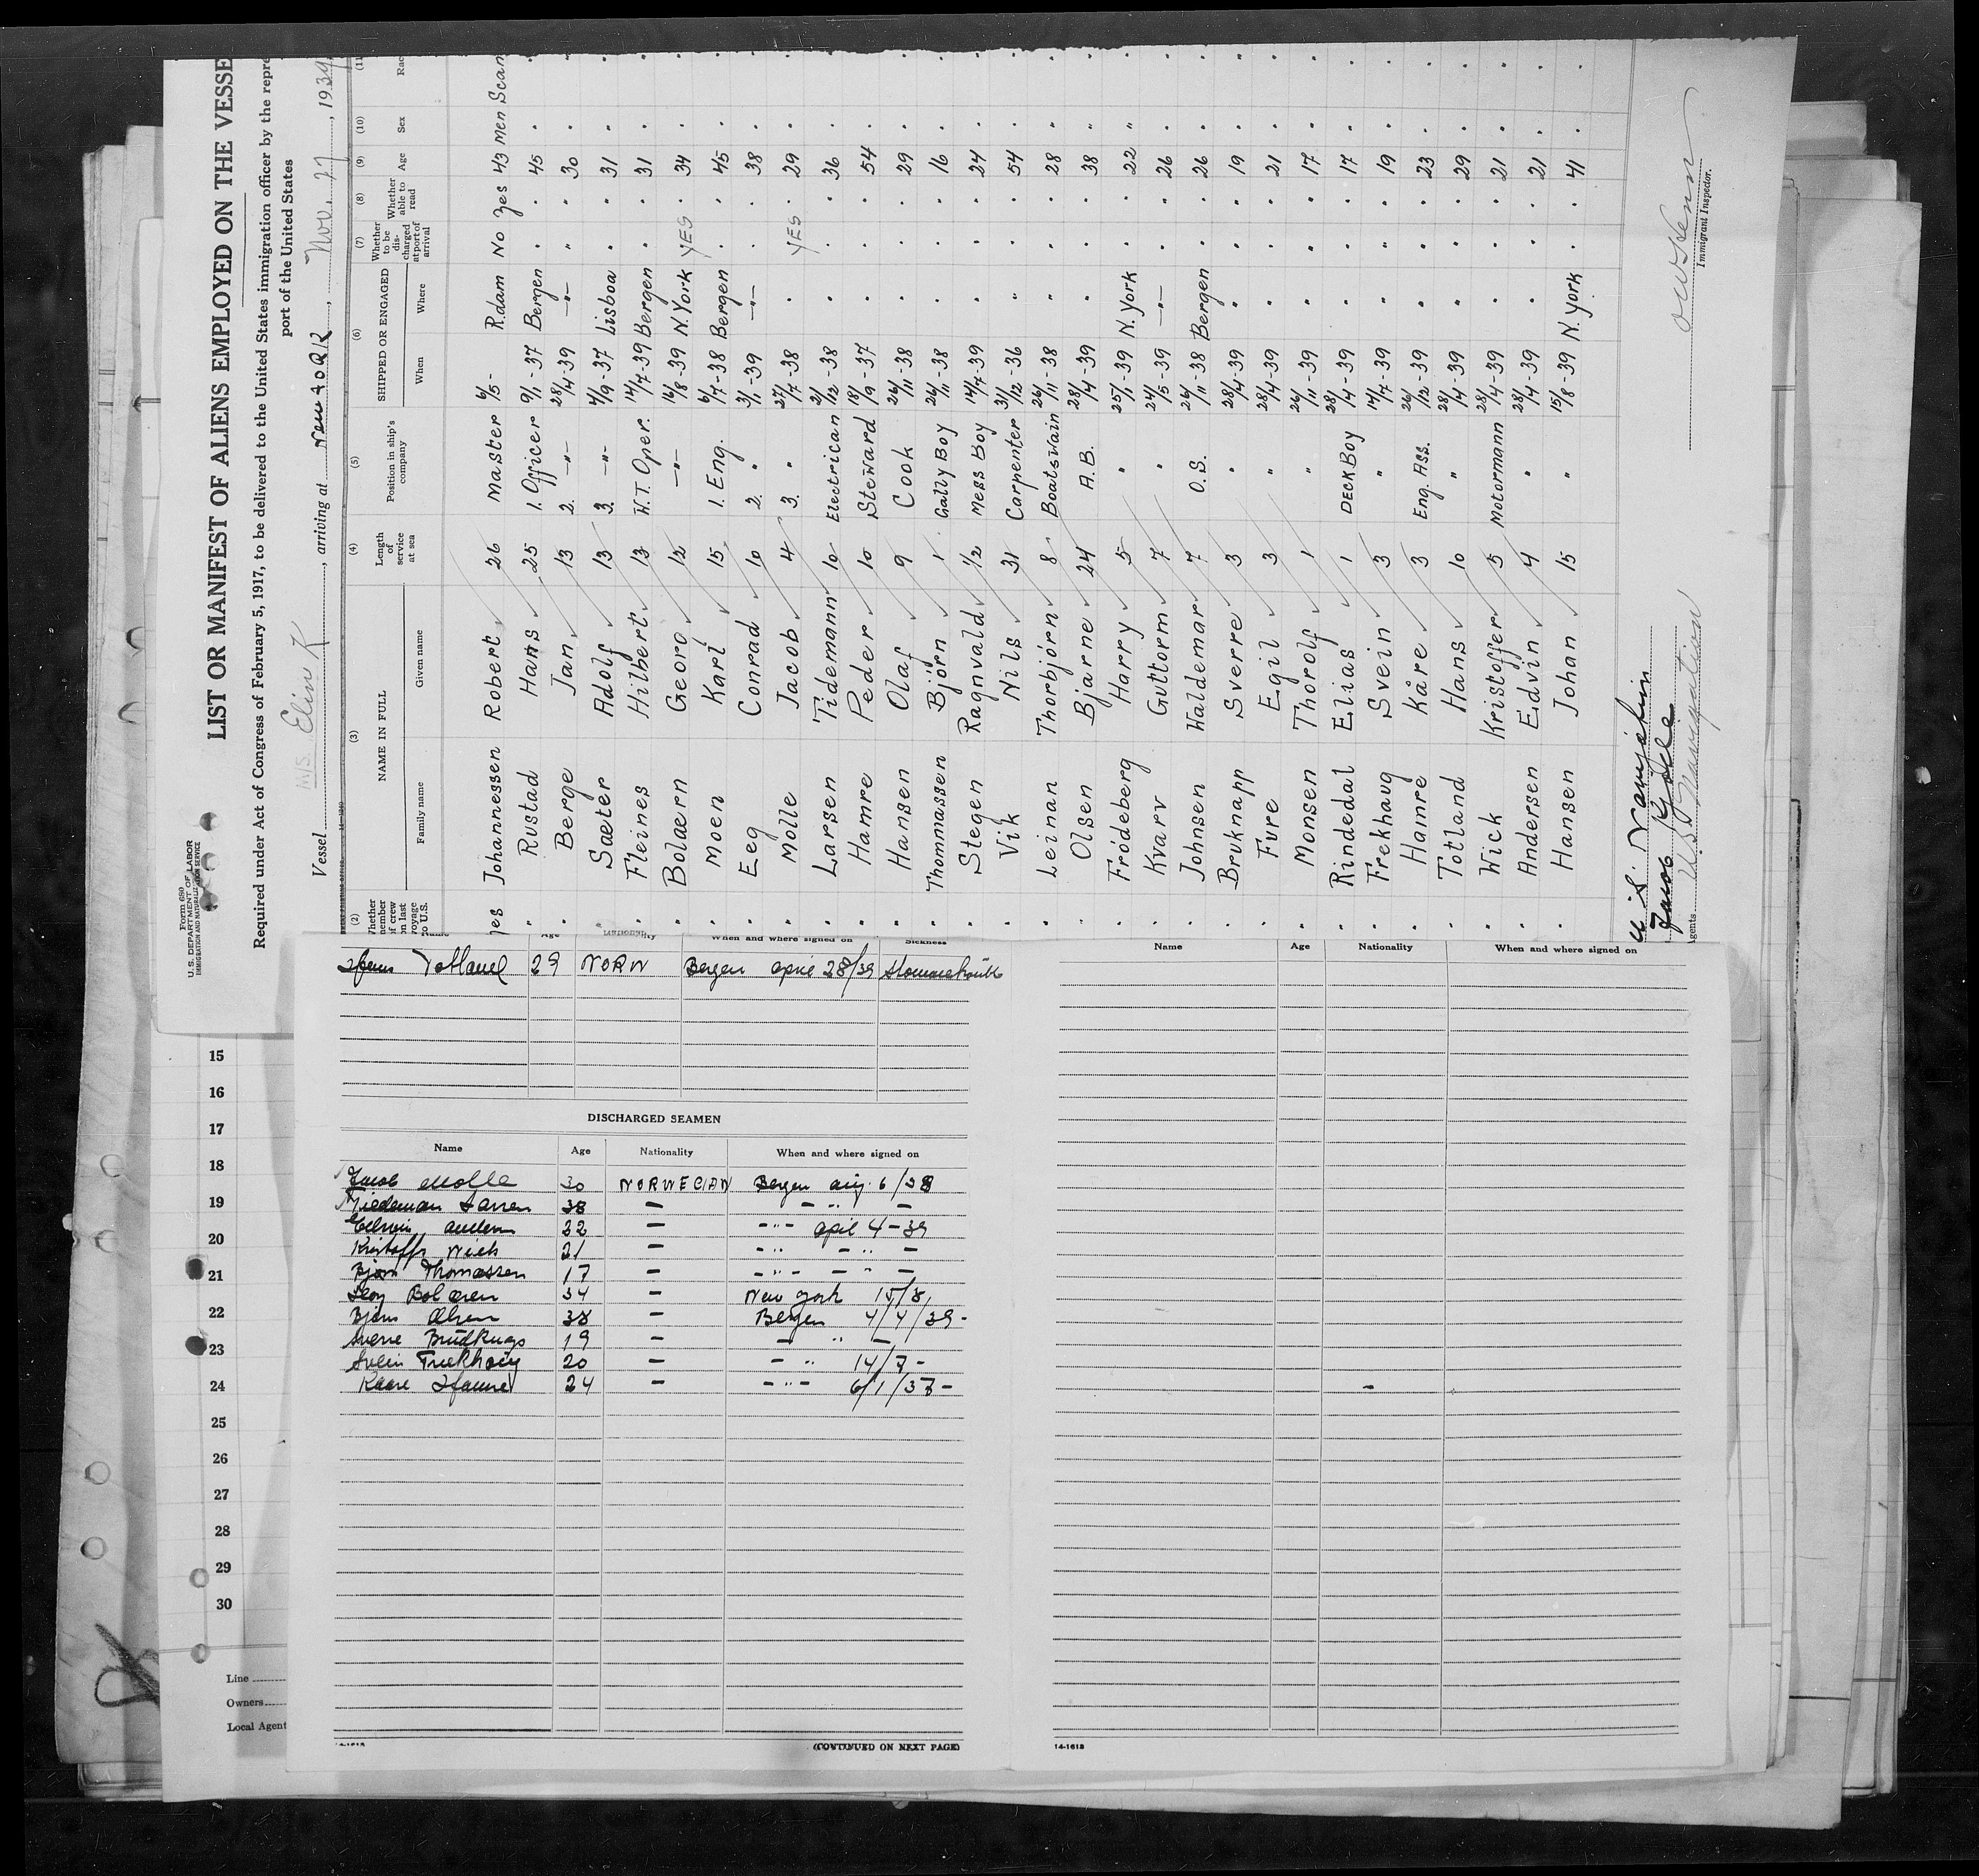 Form 689
U. S. DEPARTMENT OF LABOR
IMMIGRATION AND NATURALIZATION SERVICE
LIST OR MANIFEST OF ALIENS EMPLOYED ON THE VESSE
Required under Act of Congress of February 5, 1917, to be delivered to the United States immigration officer by the repre
port of the United States
Vessel M/S. Elin K, arriving at New YORK, Nov. 27, 1939
(2) (3) (4) (5) (6) (7) (8) (9) (10) (11
Whether member of crew on last voyage to U.S. NAME IN FULL Length of service at sea Position in ship's company SHIPPED OR ENGAGED Whether to be discharged at port of arrival Whether able to read Age Sex Rac
Family name Given name When Where
yes Johannessen Robert 26 Master 6/5- R.dam No Yes 43 Men Scan
" Rustad Hans 25 1. Officer 9/1-37 Bergen " " 45 "
" Berge Jan 13 2. -"- 28/4-39 -"- " " 30 "
" Sæter Adolf 13 3. -"- 4/9-37 Lisboa " " 31 "
" Fleines Hilbert 13 W.T. Oper. 14/7-39 Bergen " " 31 "
" Bolaern Georg 12 -"- 16/8-39 N.York YES " 34 "
" Moen Karl 15 1. Eng. 6/7-38 Bergen " " 45 "
" Eeg Conrad 10 2. " 3/1-39 -"- " " 38 "
" Molle Jacob 4 3. " 27/7-38 " YES " 29 "
" Larsen Tidemann 10 Electrican 2/12-38 " " " 36 "
" Hamre Peder 10 Steward 18/9-37 " " " 54 "
" Hansen Olaf 9 Cook 26/11-38 " " " 29 "
" Thommassen Björn 1 Gally Boy 26/11-38 " " " 16 "
" Stegen Ragnvald 1/2 Mess Boy 14/7-39 " " " 24 "
" Vik Nils 31 Carpenter 31/12-36 " " " 54 "
" Leinan Thorbjórn 8 Boatswain 26/11-38 " " " 28 "
" Olsen Bjarne 24 A.B. 28/4-39 " " " 38 "
" Fródeberg Harry 5 " 25/1-39 N.York " " 22 "
" Kvarv Guttorm 7 " 24/5-39 -"- " " 26 "
" Johnsen Waldemar 7 O.S. 26/11-38 Bergen " " 26 "
" Bruknapp Sverre 3 " 28/4-39 " " " 19 "
" Fure Egil 3 " 28/4-39 " " " 21 "
" Monsen Thorolf 1 " 26/11-39 " " " 17 "
" Rindedal Elias 1 DECK Boy 28/4-39 " " " 17 "
" Frekhaug Svein 3 " 14/7-39 " " " 19 "
" Hamre Kåre 3 Eng. Ass. 26/12-39 " " " 23 "
" Totland Hans 10 " 28/4-39 " " " 29 "
" Wick Kristoffer 5 Motormann 28/4-39 " " " 21 "
" Andersen Edvin 4 " 28/4-39 " " " 21 "
" Hansen Johan 15 " 15/8-39 N.York " " 41 "
Agents U.S. Navigation
Immigrant Inspector.
Age When and where signed on Sickness
Hans Totland 29 NORW Bergen april 28/39
DISCHARGED SEAMEN
Name Age Nationality When and where signed on
Jacob Molle 30 NORWEGIAN Bergen aug. 6/38
Tiedeman Larsen 38 — — " —
22 — -"- april 4-39
Kristoffer Wick 21 — -" - " —
Bjørn Thomassen 17 — -"- - " —
Bolæren 34 — New york 15/8
Bjarne Olsen 38 — Bergen 4/4/39-
Sverre 19 — — " —
Svein Frekhaug 20 — — " 14/7-
Kaare Hamre 24 — -"- 6/1/37-
(CONTINUED ON NEXT PAGE)
Name Age Nationality When and where signed on
14-1613
15
16
17
18
19
20
21
22
23
24
25
26
27
28
29
30
Line
Owners
Local Agent